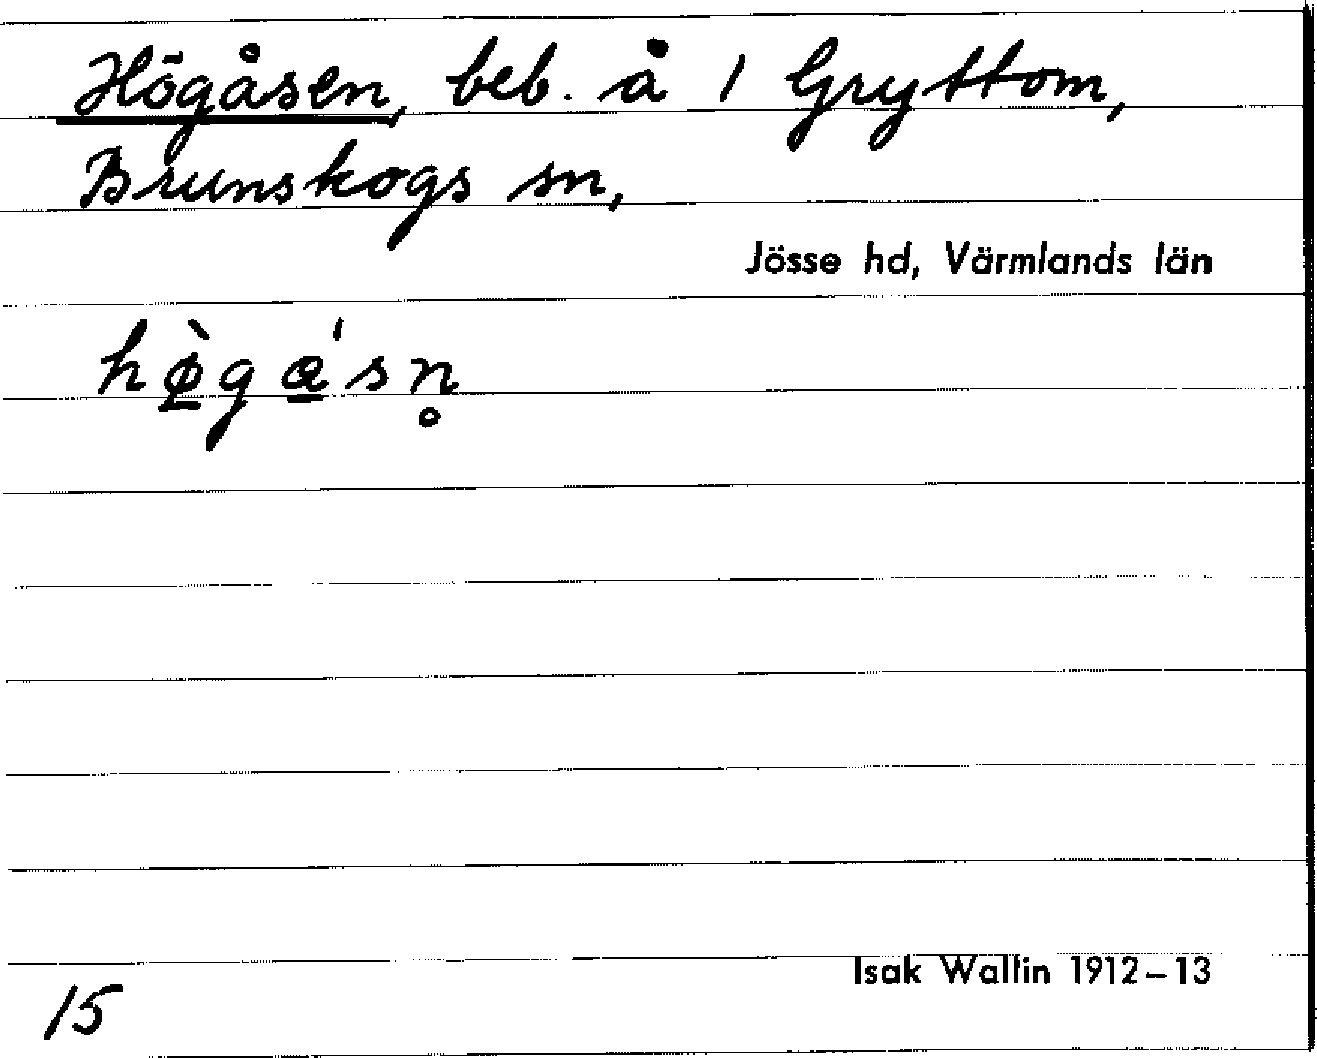 Högåsen, beb. å 1 Gryttom,
Brunskogs sn,
Jösse hd, Värmlands län
hø̀gæ'sn̥
Isak Wallin 1912–13
15